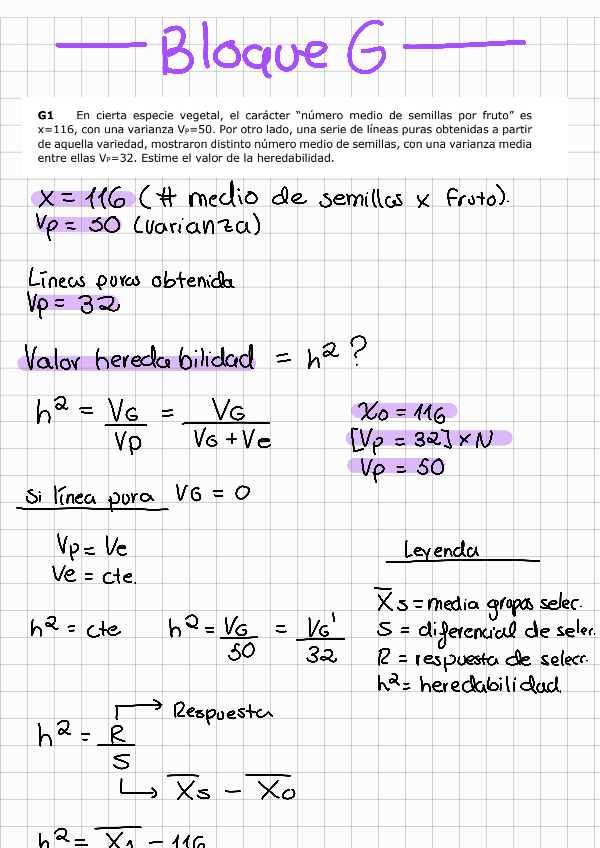 Bloque G
G1 En cierta especie vegetal, el carácter “número medio de semillas por fruto” es
x=116, con una varianza VP=50. Por otro lado, una serie de líneas puras obtenidas a partir
de aquella variedad, mostraron distinto número medio de semillas, con una varianza media
entre ellas VP=32. Estime el valor de la heredabilidad.
x = 116 (# medio de semillas x fruto).
Vp = 50 (varianza)
Líneas puras obtenida
Vp = 32
Valor heredabilidad = h² ?
h² = VG/Vp = VG/(VG + Ve)
X0 = 116
[Vp = 32] x N
Vp = 50
Si línea pura VG = 0
Vp = Ve
Ve = cte.
h² = cte h² = VG/50 = VG'/32
Leyenda
X̅s = media grupos selec.
S = diferencial de selec.
R = respuesta de selecc.
h² = heredabilidad.
h² = R/S
Respuesta
X̅s − X̅o
h² = X̅1 − 116